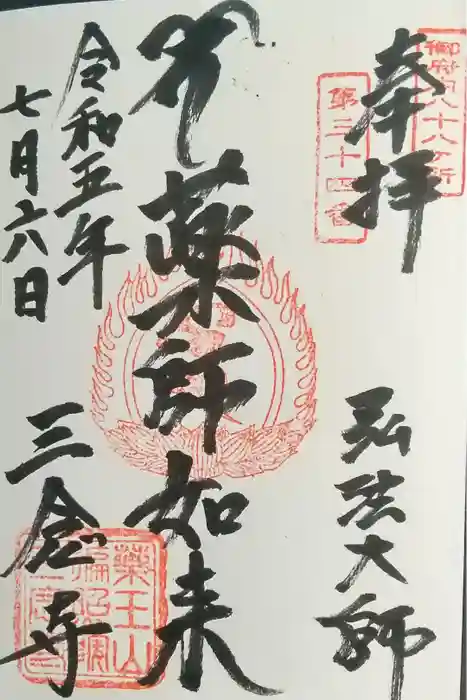 御府内八十八ヶ所
奉拝
第三十四番
弘法大師
薬師如来
令和五年
七月六日
三念寺
薬王山